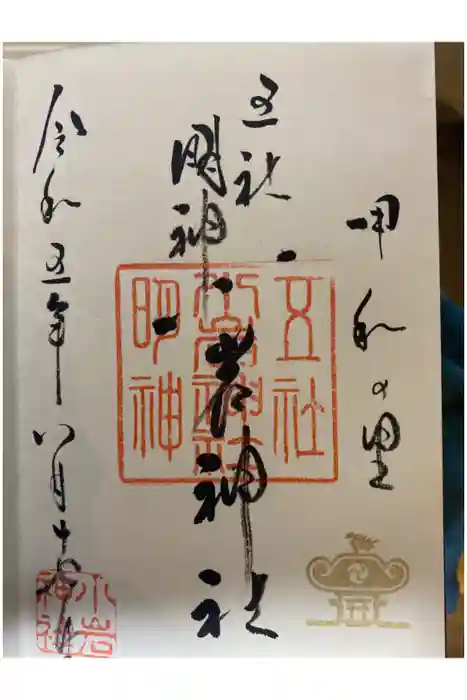 甲和の里
五社
明神
小岩神社
五社
小岩神社
明神
令和五年八月十
小岩
神社